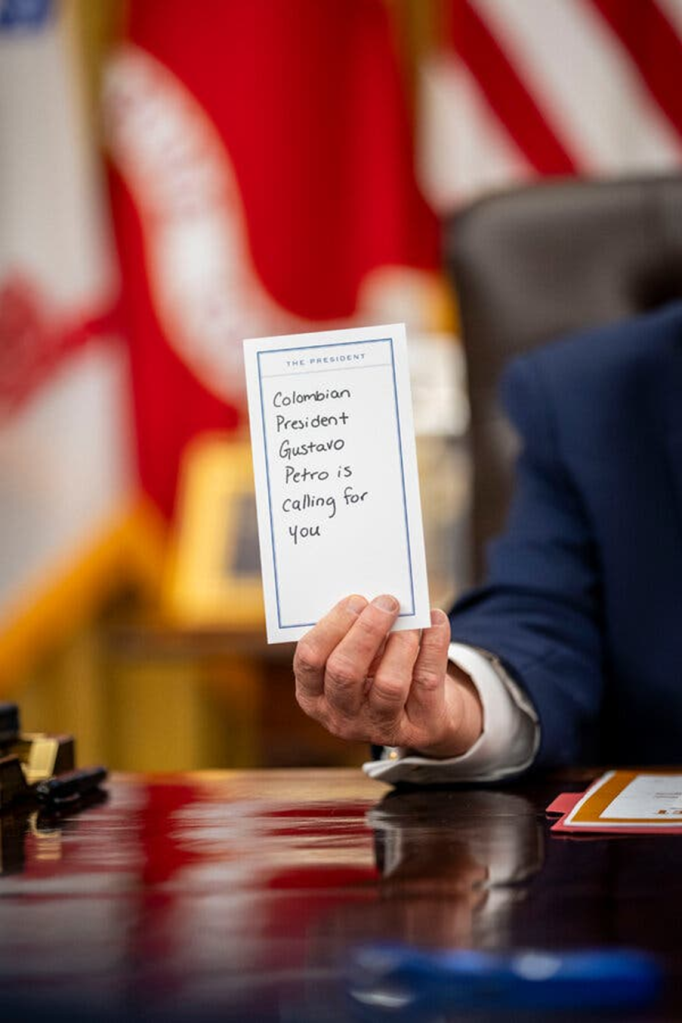 THE PRESIDENT
Colombian
President
Gustavo
Petro is
calling for
you